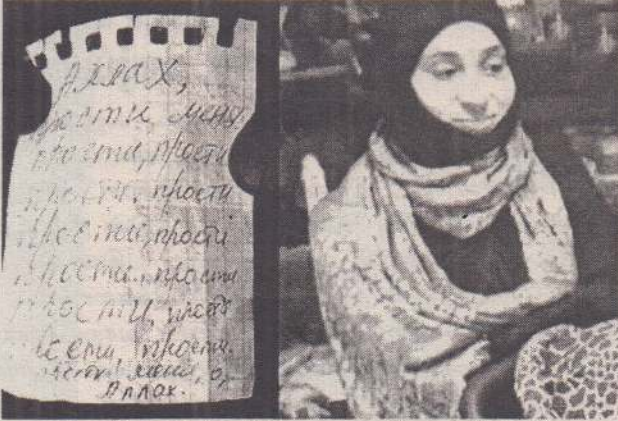 Аллах,
прости меня
прости, прости
прости, прости
прости, прості
прости, прости
прости, прост
прости.
Аллах.